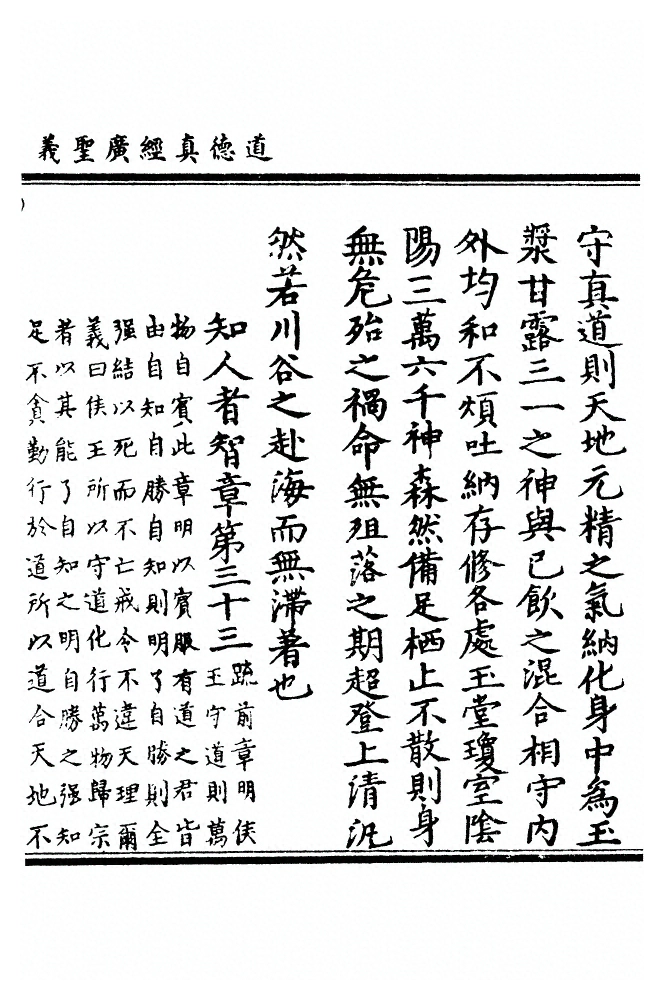 道德真經廣聖義
守真道則天地元精之氣納化身中為玉
漿甘露三一之神與已飲之混合相守內
外均和不煩吐納存修各處玉堂瓊室陰
陽三萬六千神森然備足栖止不散則身
無危殆之禍命無殂落之期超登上清汎
然若川谷之赴海而無滯著也
知人者智章第三十三
疏前章明侯
王守道則萬
物自賓此章明以賓服有道之君皆
由自知自勝自知則明了自勝則全
强結以死而不亡戒令不違天理爾
義曰侯王所以守道化行萬物歸宗
者以其能了自知之明自勝之强知
足不貪勤行於道所以道合天地不